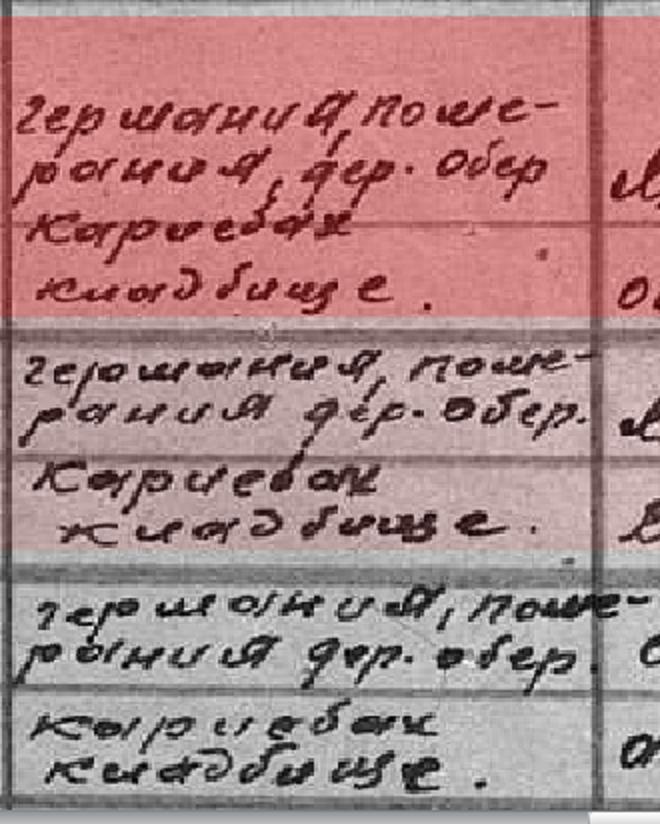 Германия, Поме-
рания, дер. Обер
Карцебах
кладбище.
Германия, Поме-
рания дер. Обер.
Карцебах
кладбище.
Германия, Поме-
рания дер. Обер.
Карцебах
кладбище.